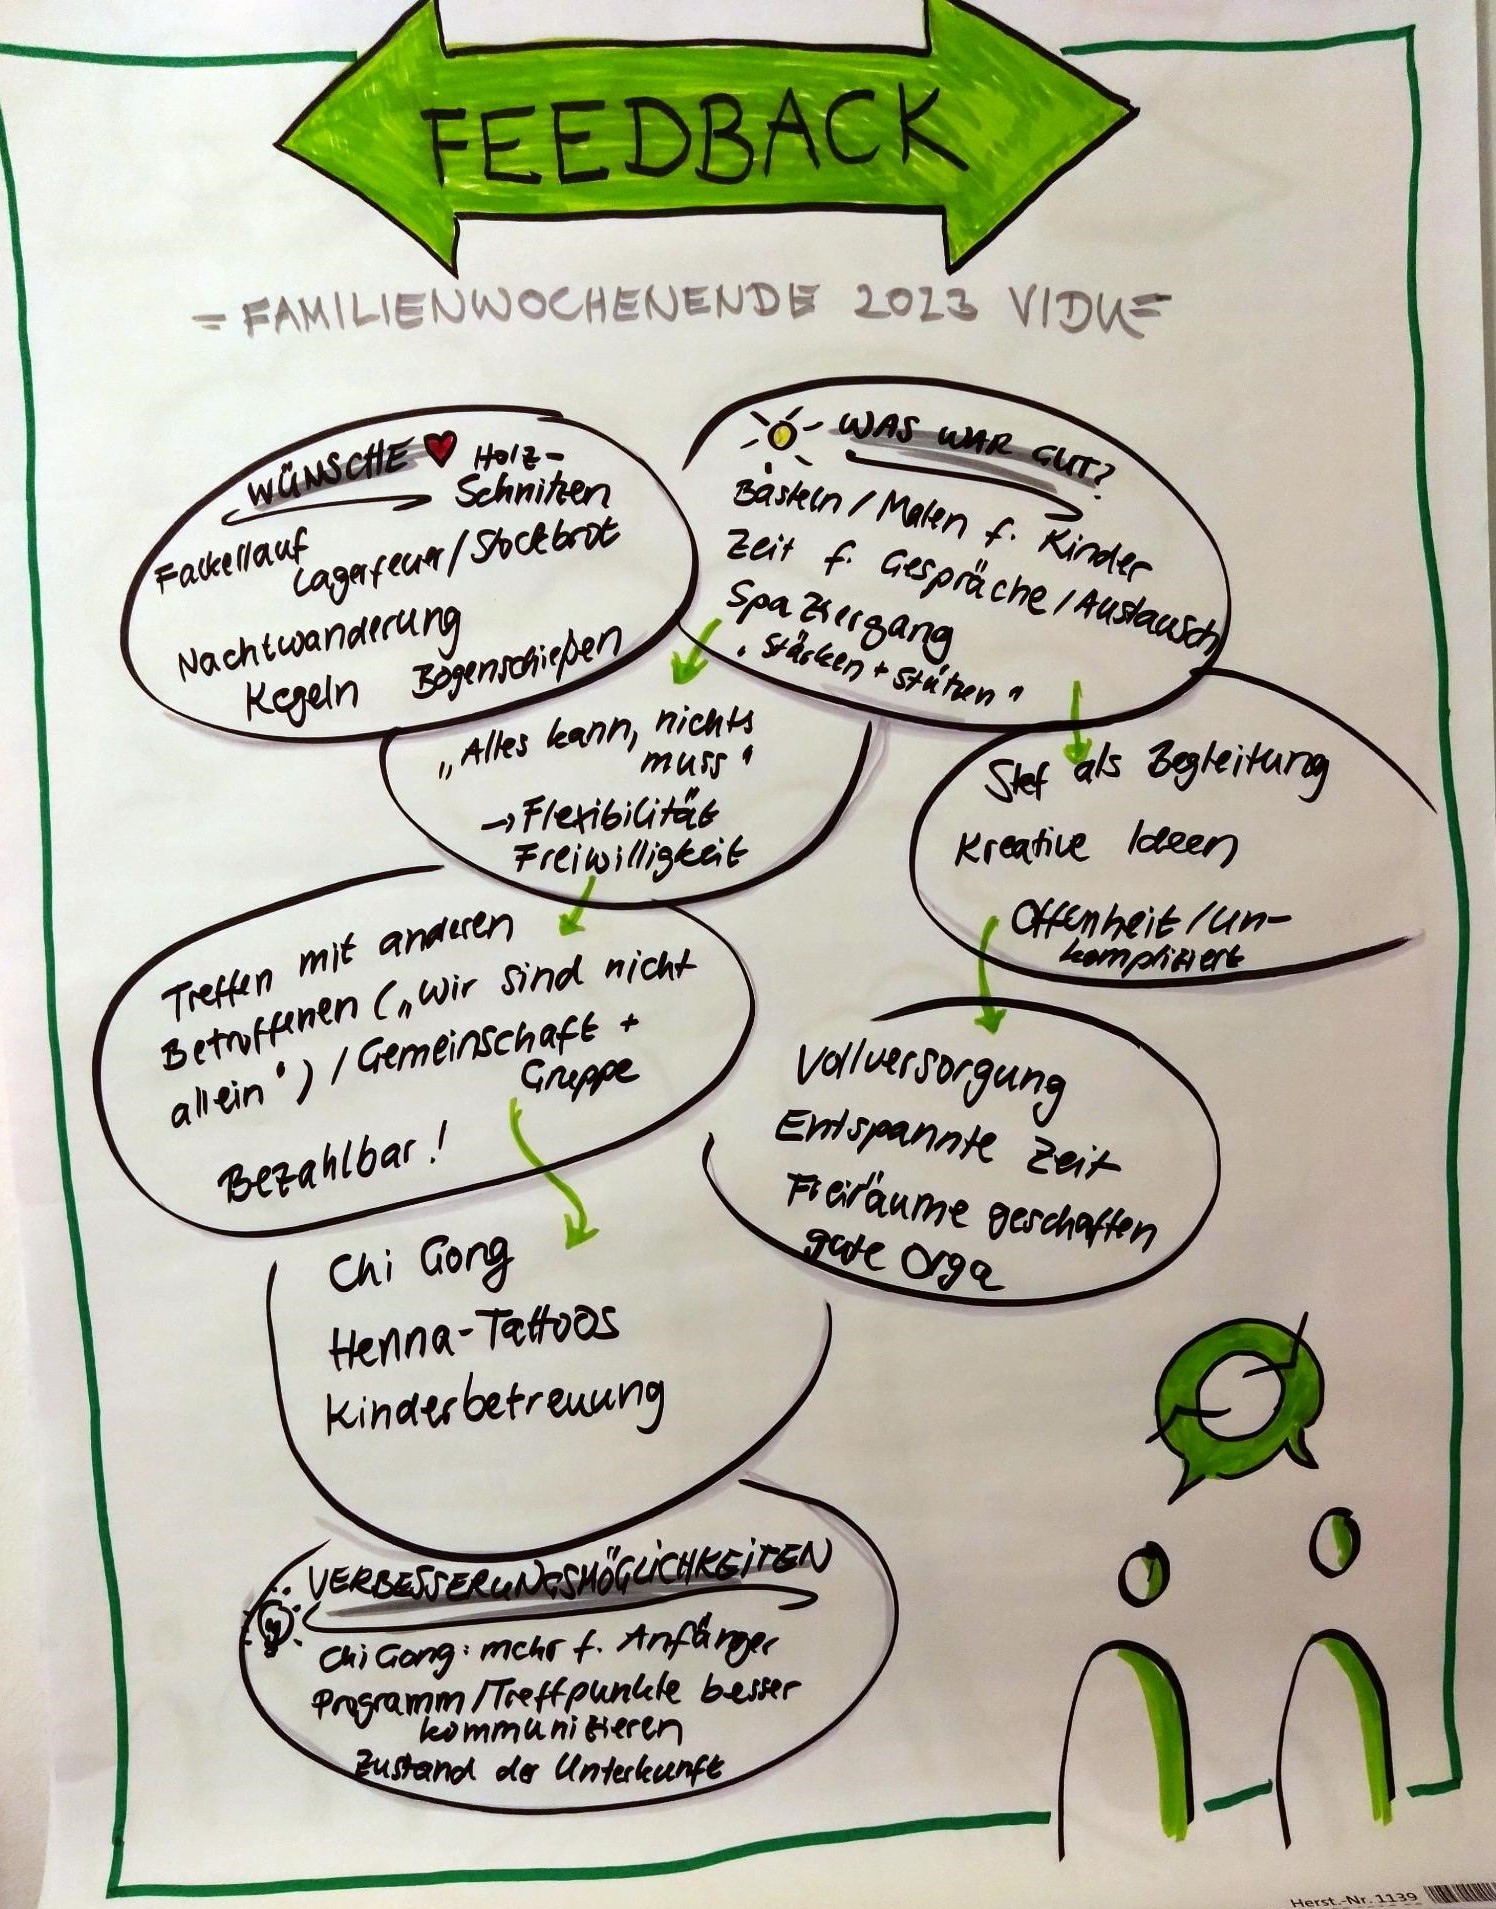 FEEDBACK
= FAMILIENWOCHENENDE 2023 VIDU =
WÜNSCHE
Holz-
Schnitzen
Fackellauf
Lagerfeuer/Stockbrot
Nachtwanderung
Kegeln
Bogenschießen
WAS WAR GUT?
Basteln/Malen f. Kinder
Zeit f. Gespräche/Austausch
Spaziergang
"Stärken + Stützen"
„Alles kann, nichts
muss"
→ Flexibilität
Freiwilligkeit
Stef als Begleitung
Kreative Ideen
Offenheit/Un-
kompliziert
Treffen mit anderen
Betroffenen („Wir sind nicht
allein") / Gemeinschaft +
Gruppe
Bezahlbar!
Vollversorgung
Entspannte Zeit
Freiräume geschaffen
gute Orga
Chi Gong
Henna-Tattoos
Kinderbetreuung
VERBESSERUNGSMÖGLICHKEITEN
Chi Gong: mehr f. Anfänger
Programm/Treffpunkte besser
kommunizieren
Zustand der Unterkunft
Herst.-Nr. 1139